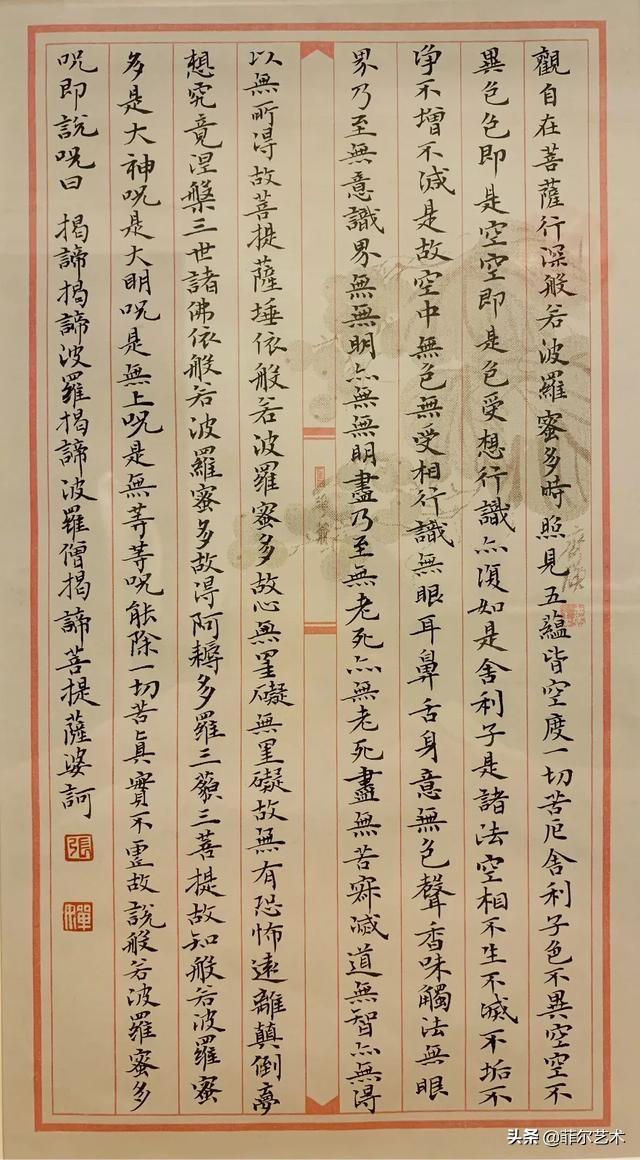 觀自在菩薩行深般若波羅蜜多時照見五蘊皆空度一切苦厄舍利子色不異空空不
異色色即是空空即是色受想行識亦復如是舍利子是諸法空相不生不滅不垢不
净不增不減是故空中無色無受相行識無眼耳鼻舌身意無色聲香味觸法無眼
界乃至無意識界無無明亦無無明盡乃至無老死亦無老死盡無苦寂滅道無智亦無得
以無所得故菩提薩埵依般若波羅蜜多故心無罣礙無罣礙故無有恐怖遠離顛倒夢
想究竟涅槃三世諸佛依般若波羅蜜多故得阿耨多羅三藐三菩提故知般若波羅蜜
多是大神呪是大明呪是無上呪是無等等呪能除一切苦真實不虛故說般若波羅蜜多
呪即說呪曰 揭諦揭諦波羅揭諦波羅僧揭諦菩提薩婆訶
張
头条 @菲尔艺术